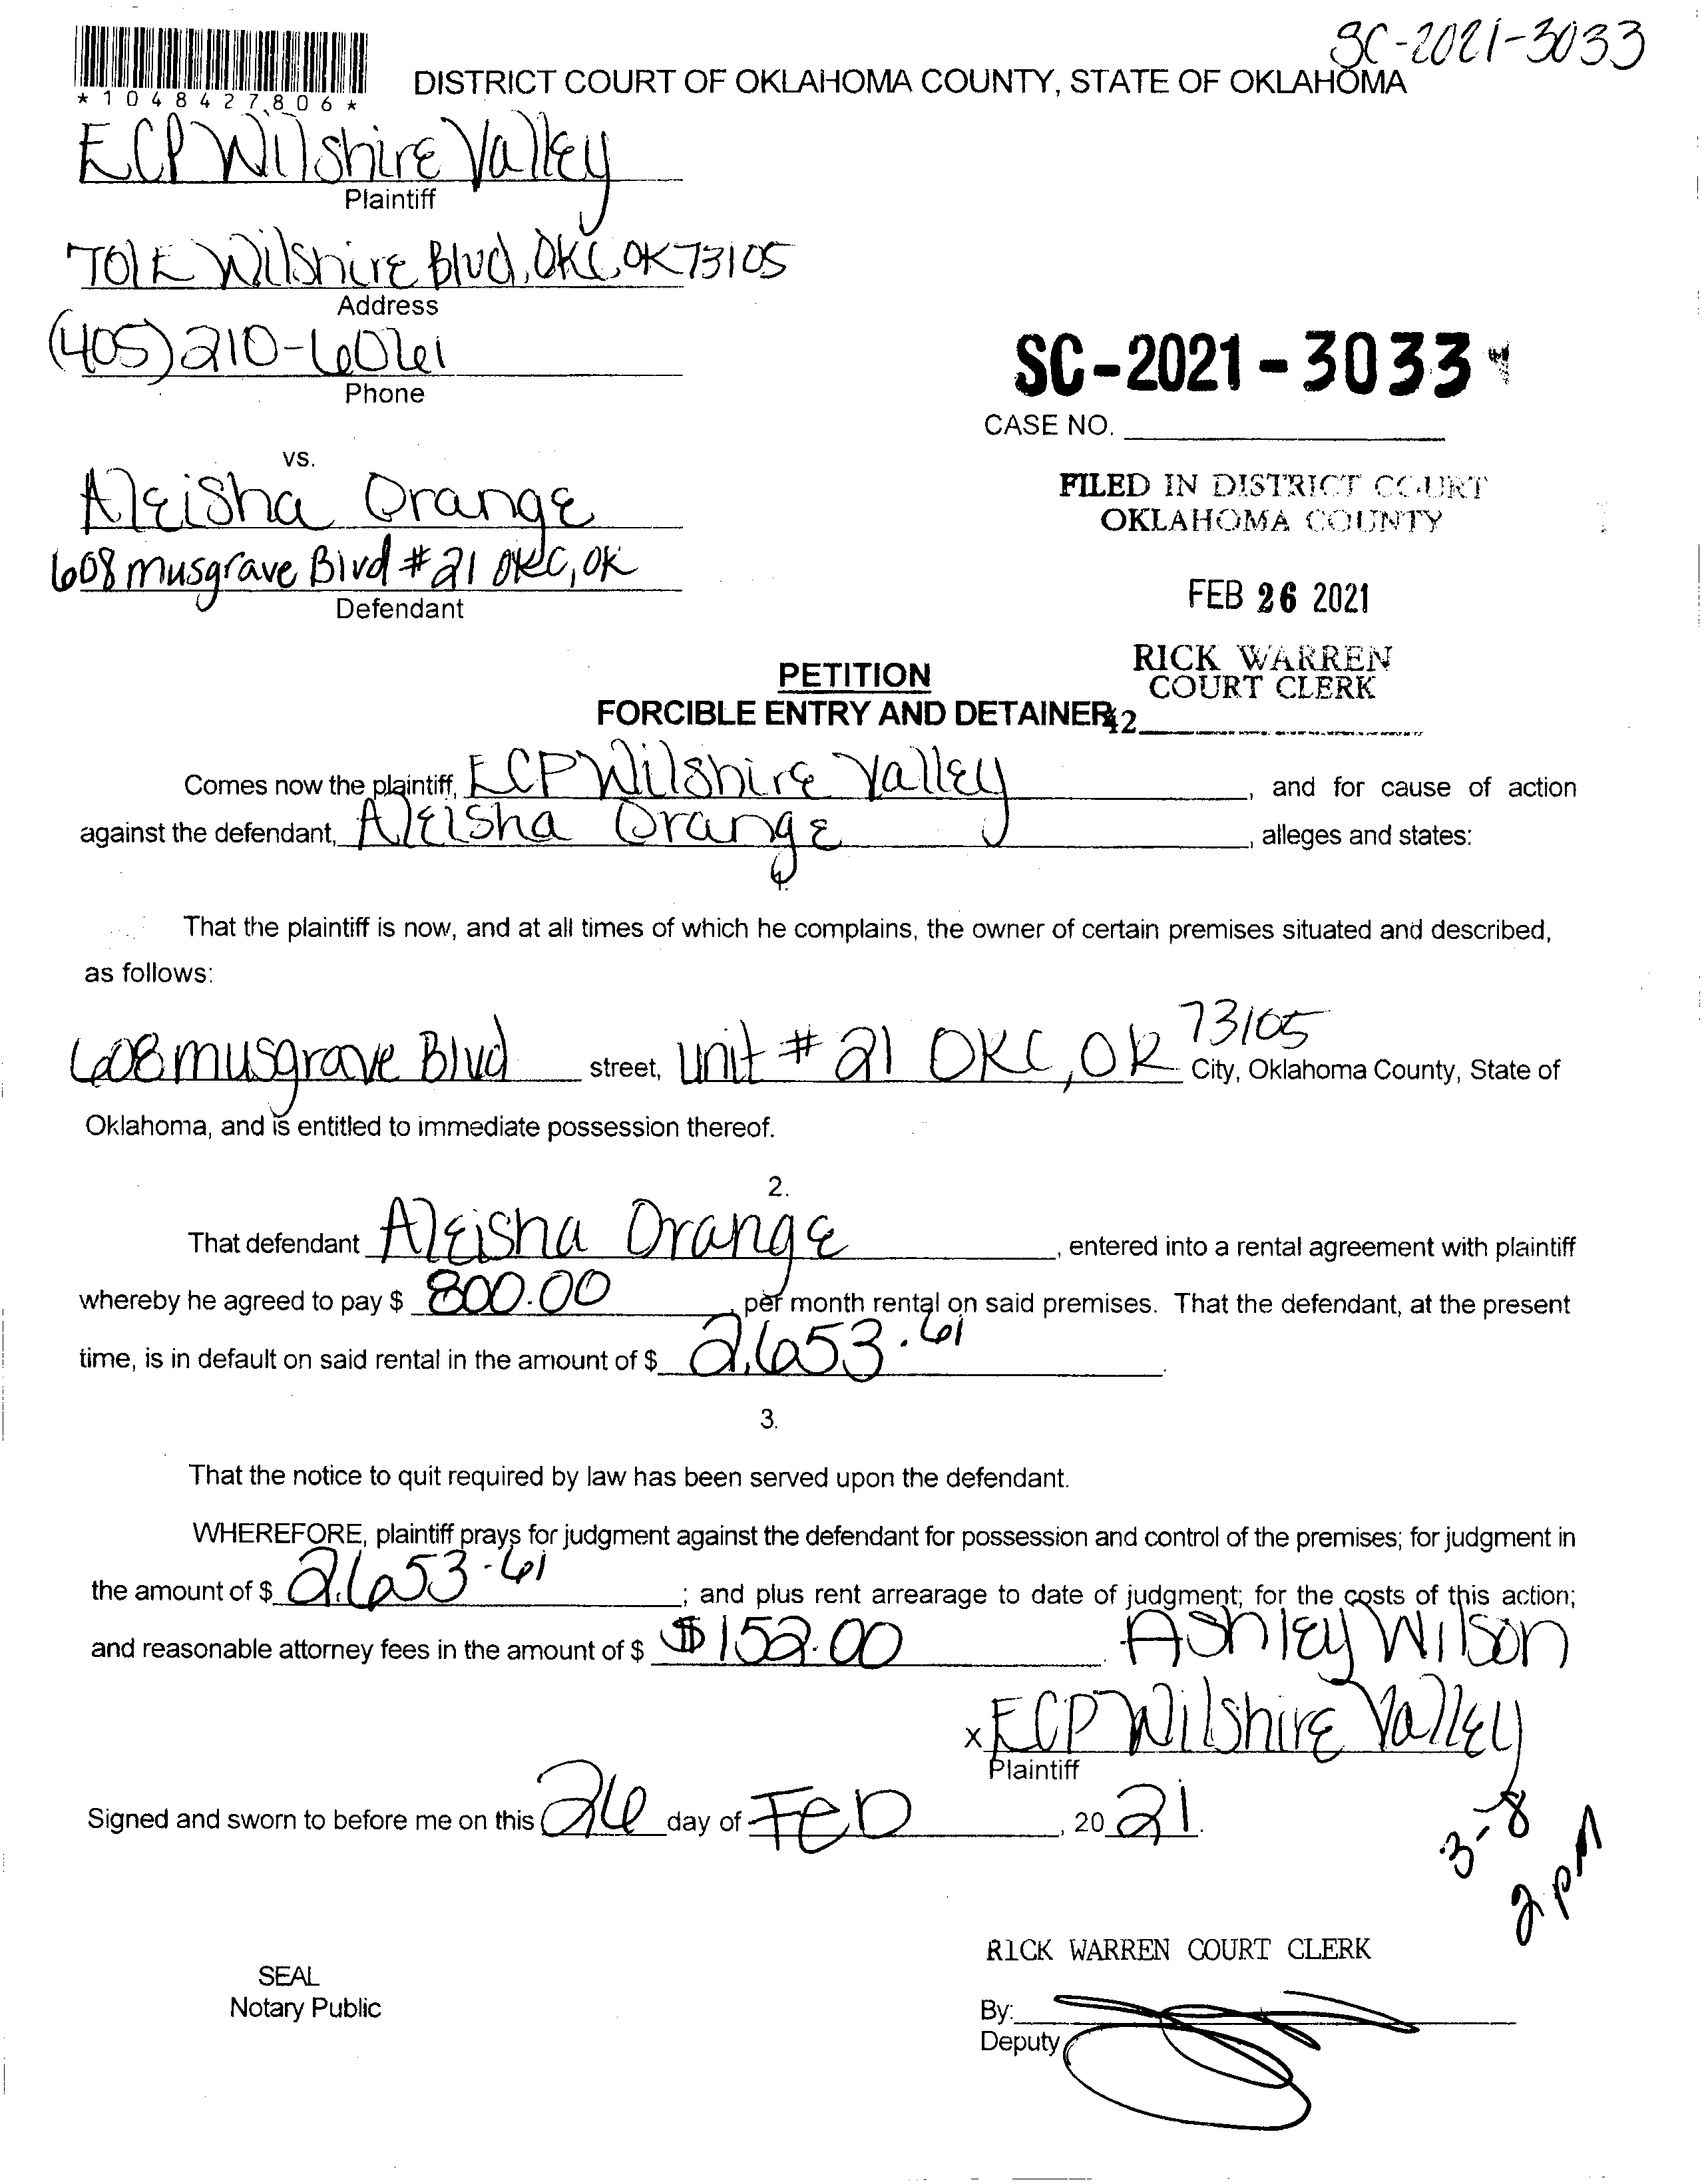 SC-2021-3033
*1048427806*
DISTRICT COURT OF OKLAHOMA COUNTY, STATE OF OKLAHOMA
ECP Wilshire Valley
Plaintiff
701 E Wilshire Blvd, OKC, OK 73105
Address
(405) 210-6061
Phone
SC-2021-3033
CASE NO.
vs.
Aleisha Orange
608 musgrave Blvd #21 OKC, OK
Defendant
FILED IN DISTRICT COURT
OKLAHOMA COUNTY
FEB 26 2021
RICK WARREN
COURT CLERK
42
PETITION
FORCIBLE ENTRY AND DETAINER
Comes now the plaintiff, ECP Wilshire Valley, and for cause of action
against the defendant, Aleisha Orange, alleges and states:
1.
That the plaintiff is now, and at all times of which he complains, the owner of certain premises situated and described,
as follows:
608 musgrave Blvd street, unit # 21 OKC, OK 73105 City, Oklahoma County, State of
Oklahoma, and is entitled to immediate possession thereof.
2.
That defendant Aleisha Orange, entered into a rental agreement with plaintiff
whereby he agreed to pay $ 800.00, per month rental on said premises. That the defendant, at the present
time, is in default on said rental in the amount of $ 2,653.61.
3.
That the notice to quit required by law has been served upon the defendant.
WHEREFORE, plaintiff prays for judgment against the defendant for possession and control of the premises; for judgment in
the amount of $ 2,653.61; and plus rent arrearage to date of judgment; for the costs of this action;
and reasonable attorney fees in the amount of $ $152.00.
Ashley Wilson
x ECP Wilshire Valley
Plaintiff
Signed and sworn to before me on this 26 day of Feb, 20 21.
3-8
2 pm
RICK WARREN COURT CLERK
SEAL
Notary Public
By:
Deputy